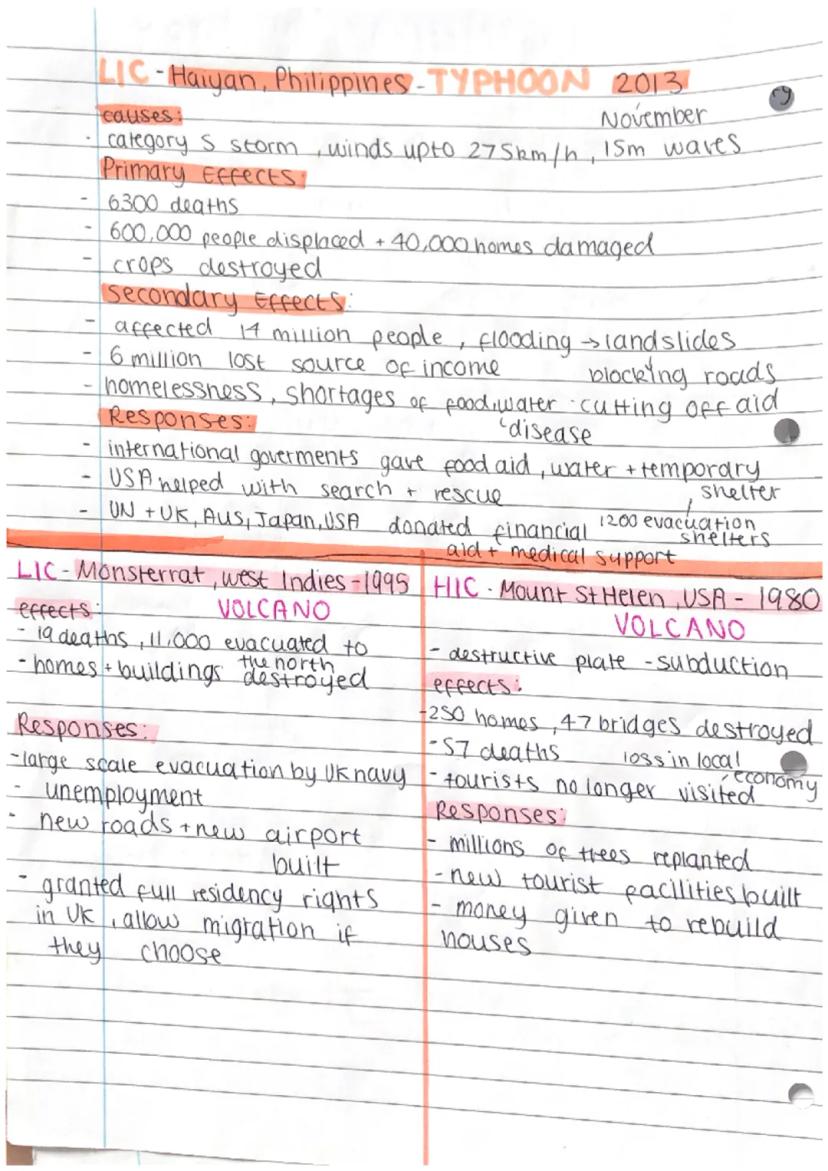 LIC - Haiyan, Philippines - TYPHOON 2013
November
causes:
- category 5 storm, winds upto 275km/h, 15m waves
Primary Effects:
- 6300 deaths
- 600,000 people displaced + 40,000 homes damaged
- crops destroyed
Secondary Effects:
- affected 14 million people, flooding → landslides
blocking roads
- 6 million lost source of income
- homelessness, shortages of food, water · cutting off aid
disease
Responses:
- international goverments gave food aid, water + temporary
shelter
- USA helped with search + rescue
, 1200 evacuation
shelters
- UN + UK, Aus, Japan, USA donated financial
aid + medical support
LIC - Monsterrat, west Indies - 1995
VOLCANO
effects:
- 19 deaths, 11,000 evacuated to
the north
- homes + buildings destroyed
Responses:
- large scale evacuation by UK navy
- unemployment
- new roads + new airport
built
- granted full residency rights
in UK, allow migration if
they choose
HIC - Mount St Helen, USA - 1980
VOLCANO
- destructive plate - subduction
effects:
- 250 homes, 47 bridges destroyed
- 57 deaths loss in local
economy
- tourists no longer visited
Responses:
- millions of trees replanted
- new tourist facilities built
- money given to rebuild
houses